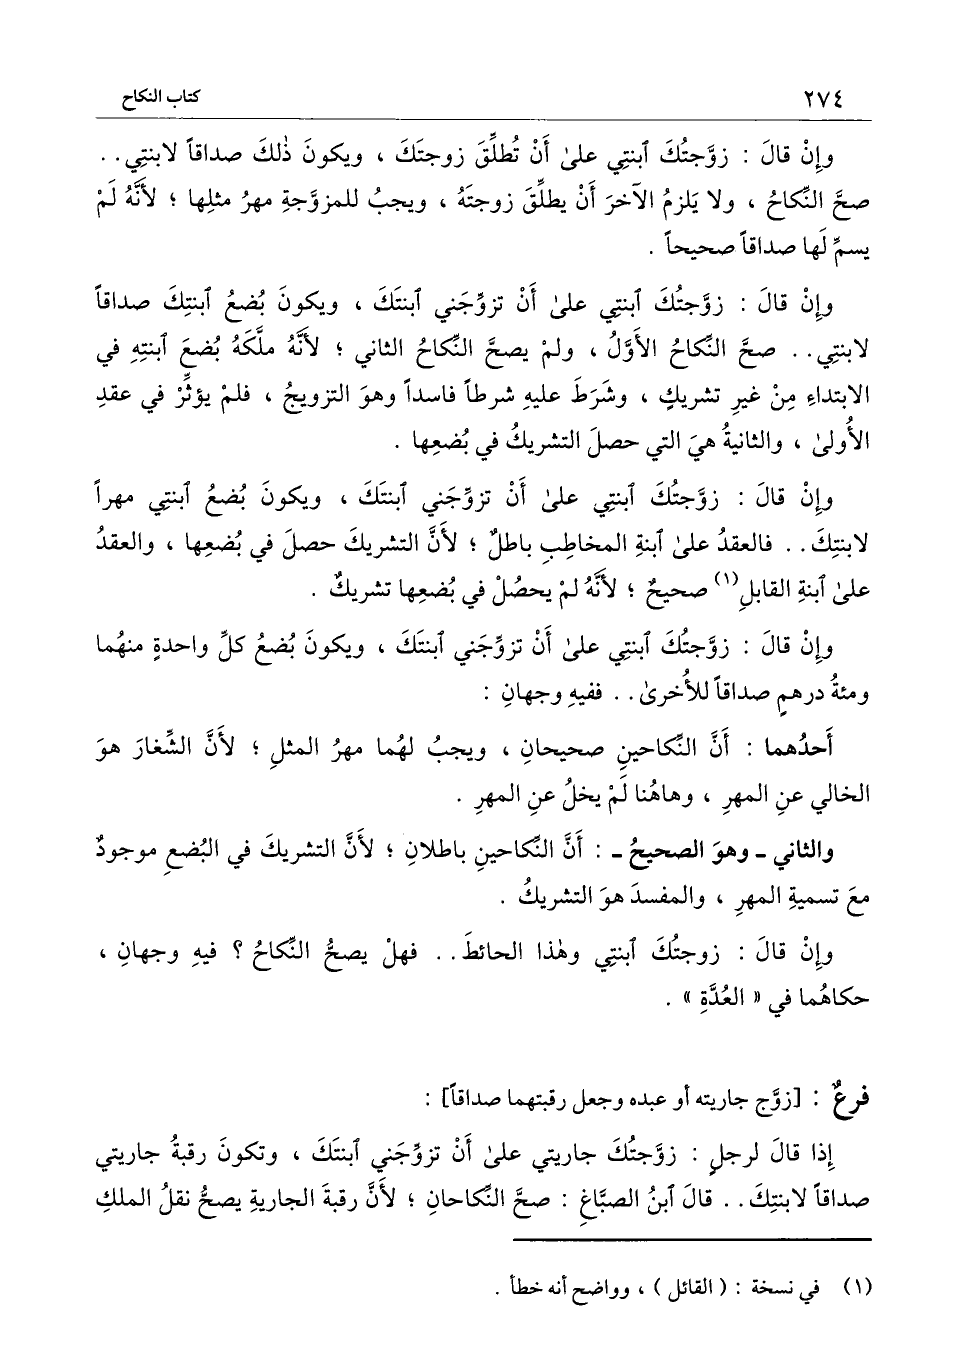 ٢٧٤ كتاب النكاح
وإنْ قالَ : زوَّجتُكَ ٱبنتِي علىٰ أَنْ تُطلِّقَ زوجتَكَ ، ويكونَ ذٰلكَ صداقاً لابنتِي . .
صحَّ النِّكاحُ ، ولا يَلزمُ الآخرَ أَنْ يطلِّقَ زوجتَهُ ، ويجبُ للمزوَّجةِ مهرُ مثلِها ؛ لأَنَّهُ لَمْ
يسمِّ لَها صداقاً صحيحاً .
وإنْ قالَ : زوَّجتُكَ ٱبنتِي علىٰ أَنْ تزوِّجَني ٱبنتَكَ ، ويكونَ بُضعُ ٱبنتِكَ صداقاً
لابنتِي . . صحَّ النِّكاحُ الأَوَّلُ ، ولمْ يصحَّ النِّكاحُ الثاني ؛ لأَنَّهُ ملَّكَهُ بُضعَ ٱبنتِهِ في
الابتداءِ مِنْ غيرِ تشريكٍ ، وشَرَطَ عليهِ شرطاً فاسداً وهوَ التزويجُ ، فلمْ يؤثِّرْ في عقدِ
الأُولىٰ ، والثانيةُ هيَ التي حصلَ التشريكُ في بُضعِها .
وإنْ قالَ : زوَّجتُكَ ٱبنتِي علىٰ أَنْ تزوِّجَني ٱبنتَكَ ، ويكونَ بُضعُ ٱبنتِي مهراً
لابنتِكَ . . فالعقدُ علىٰ ٱبنةِ المخاطِبِ باطلٌ ؛ لأَنَّ التشريكَ حصلَ في بُضعِها ، والعقدُ
علىٰ ٱبنةِ القابلِ(١) صحيحٌ ؛ لأَنَّهُ لمْ يحصُلْ في بُضعِها تشريكٌ .
وإنْ قالَ : زوَّجتُكَ ٱبنتِي علىٰ أَنْ تزوِّجَني ٱبنتَكَ ، ويكونَ بُضعُ كلِّ واحدةٍ منهُما
ومئةُ درهمٍ صداقاً للأُخرىٰ . . ففيهِ وجهانِ :
أَحدُهما : أَنَّ النِّكاحينِ صحيحانِ ، ويجبُ لهُما مهرُ المثلِ ؛ لأَنَّ الشِّغارَ هوَ
الخالي عنِ المهرِ ، وهاهُنا لَمْ يخلُ عنِ المهرِ .
والثاني ـ وهوَ الصحيحُ ـ : أَنَّ النِّكاحينِ باطلانِ ؛ لأَنَّ التشريكَ في البُضعِ موجودٌ
معَ تسميةِ المهرِ ، والمفسدَ هوَ التشريكُ .
وإنْ قالَ : زوجتُكَ ٱبنتِي وهٰذا الحائطَ . . فهلْ يصحُّ النِّكاحُ ؟ فيهِ وجهانِ ،
حكاهُما في « العُدَّةِ » .
فرعٌ : [زوَّج جاريته أو عبده وجعل رقبتهما صداقاً] :
إذا قالَ لرجلٍ : زوَّجتُكَ جاريتي علىٰ أَنْ تزوِّجَني ٱبنتَكَ ، وتكونَ رقبةُ جاريتي
صداقاً لابنتِكَ . . قالَ ٱبنُ الصبَّاغِ : صحَّ النِّكاحانِ ؛ لأَنَّ رقبةَ الجاريةِ يصحُّ نقلُ الملكِ
(١) في نسخة : ( القائل ) ، وواضح أنه خطأ .